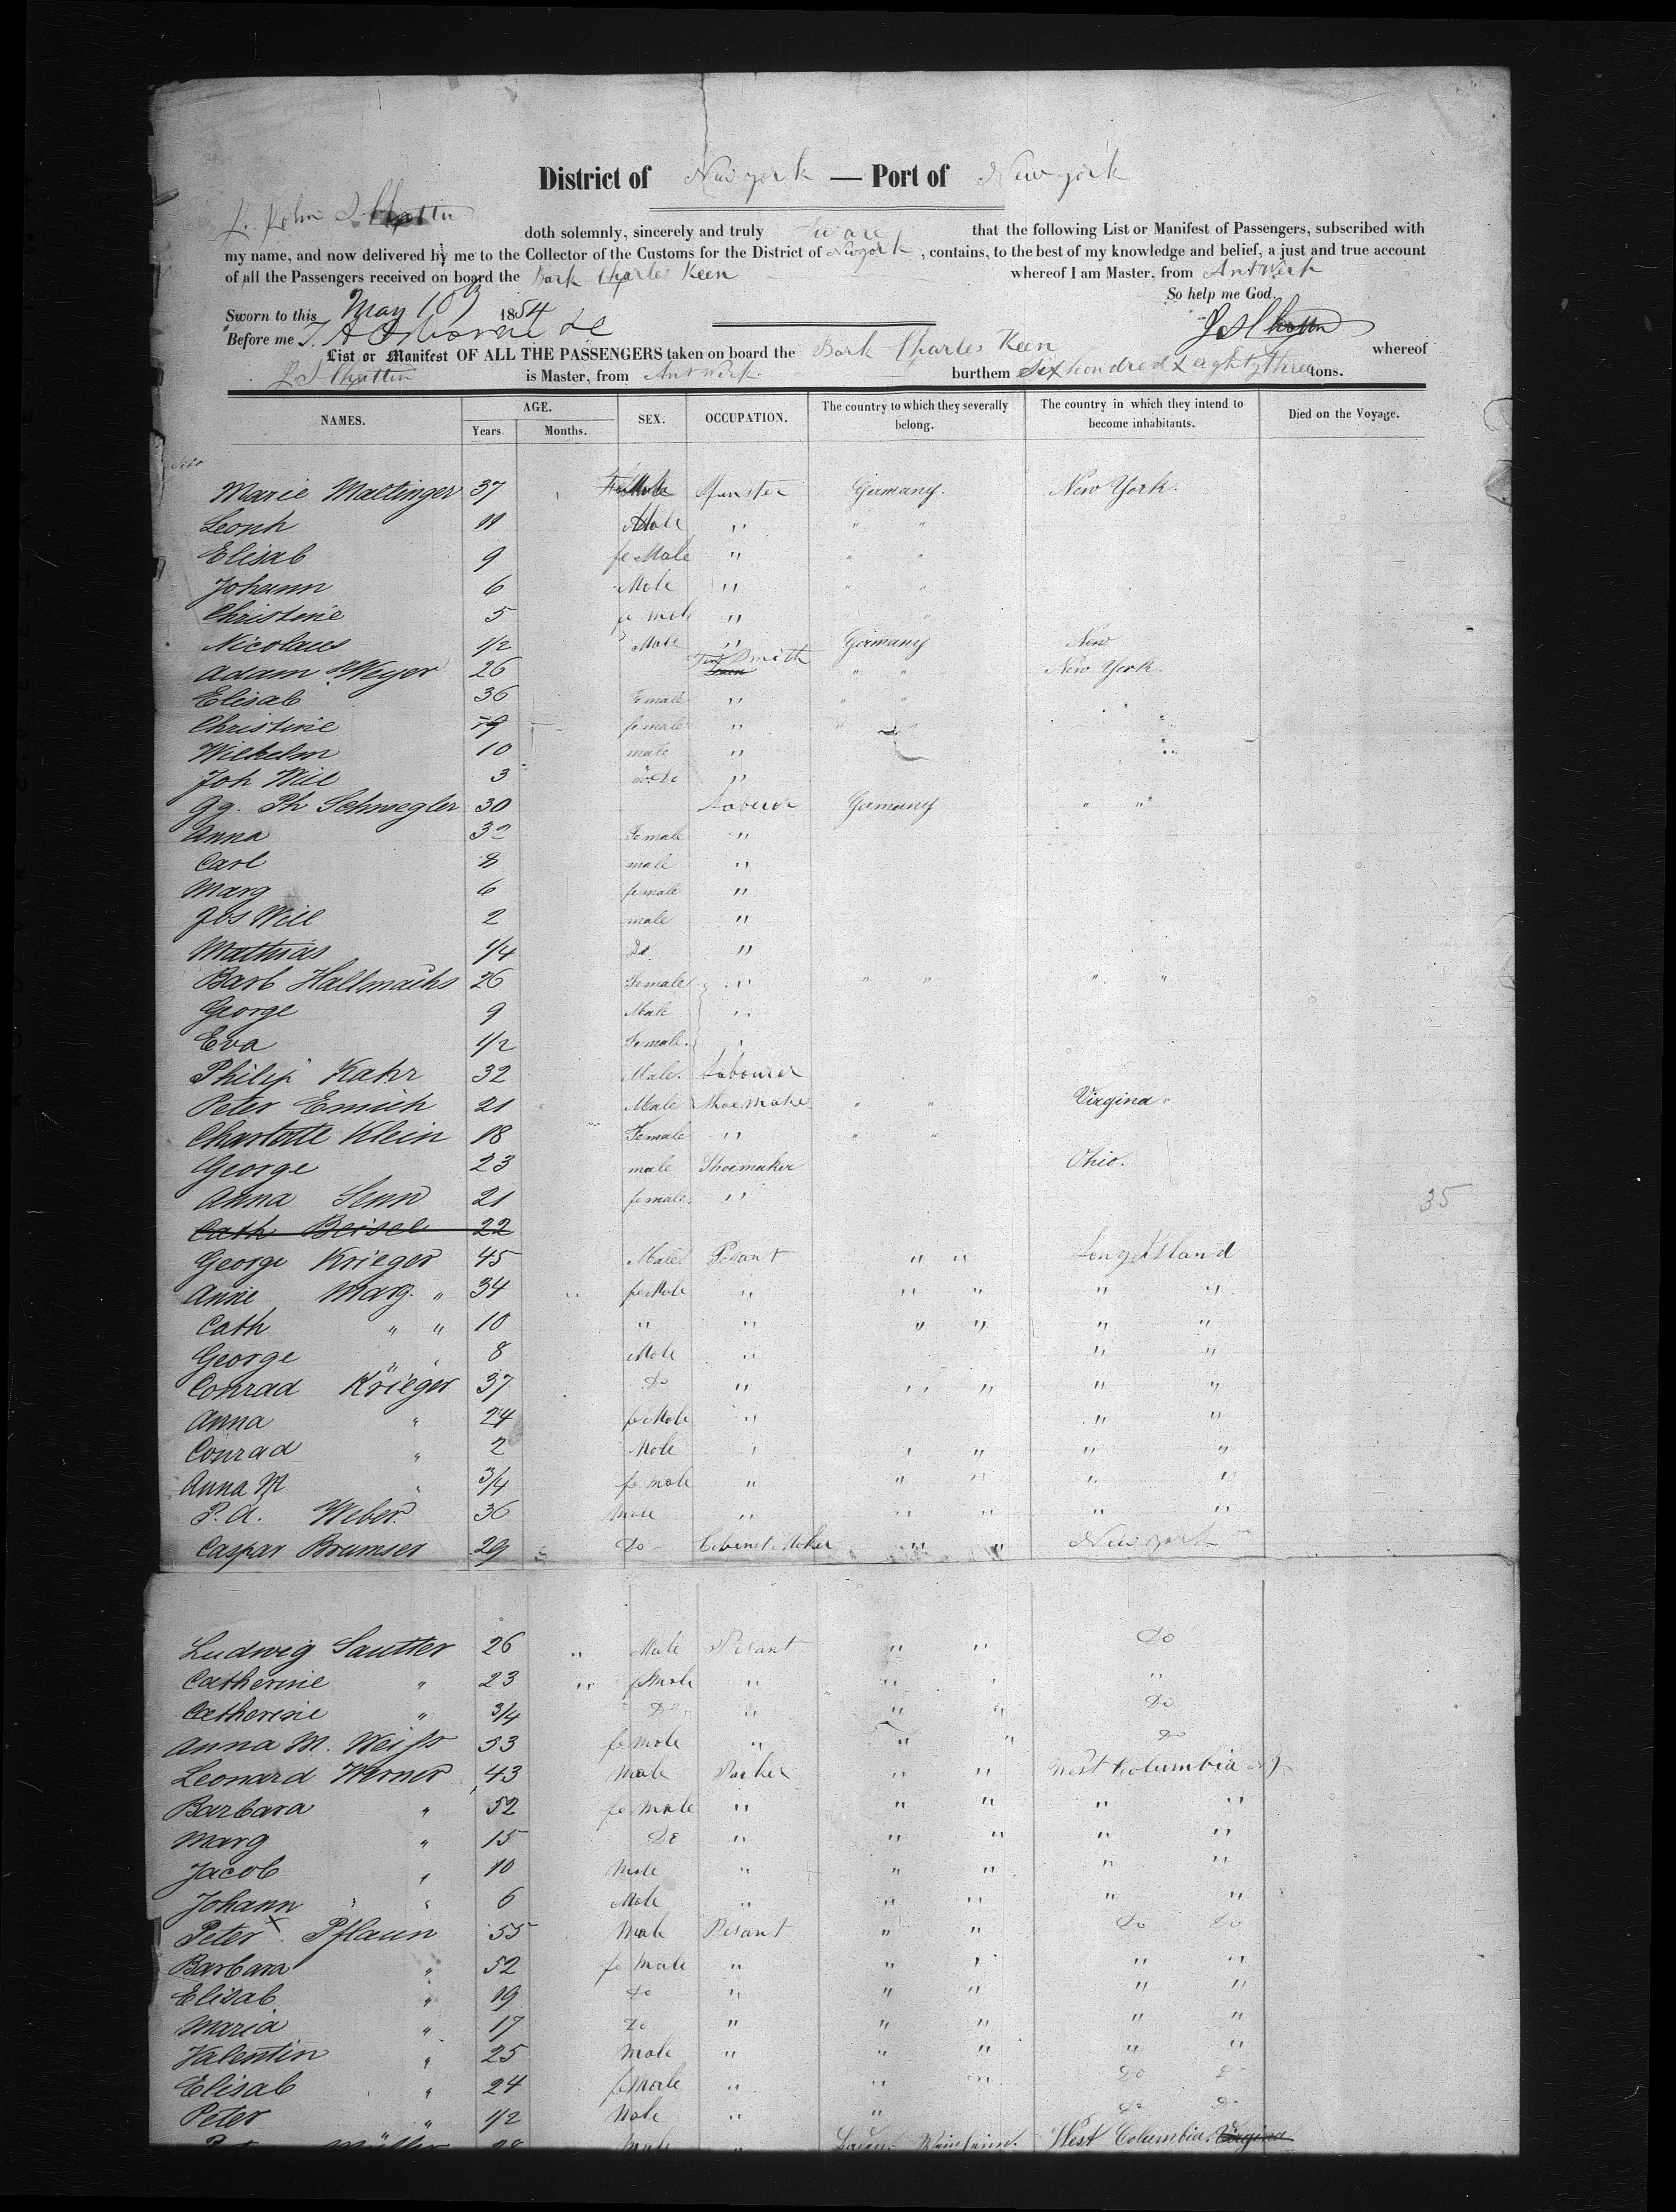 District of New york — Port of New york
I. John S. Chattin doth solemnly, sincerely and truly Sware that the following List or Manifest of Passengers, subscribed with
my name, and now delivered by me to the Collector of the Customs for the District of Nwyork, contains, to the best of my knowledge and belief, a just and true account
of all the Passengers received on board the Bark Charles Keen whereof I am Master, from Antwerp
So help me God.
Sworn to this May 10 1854
Before me
List or Manifest OF ALL THE PASSENGERS taken on board the Bark Charles Keen whereof
J S Chattin is Master, from Antwerp. burthem Six hondred & eightythree tons.
NAMES. AGE. SEX. OCCUPATION. The country to which they severally belong. The country in which they intend to become inhabitants. Died on the Voyage.
Years. Months.
Marie Maltinger 37 Germany. New York.
Leonh 11 Male " " "
Elisab 9 fe Male " " "
Johann 6 Male " " "
Christine 5 fe male "
Nicolaus 1/2 Male " Germany New
Adam Weyer 26 Tin Smith " " New York.
Elisab 36 Female " " "
Christine 19 female " " "
Wilhelm 10 male "
Joh Will 3 do "
Gg. Ph Schwegler 30 Laberor Germany " "
Anna 32 Female "
Carl 8 male "
Marg 6 female "
Jos Will 2 male "
Mathias 1/4 Do. "
Barb Hallmachs 26 Female " " " " "
George 9 Male "
Eva 1/2 Female. "
Philip Kahr 32 Male. Labourer
Peter Emich 21 Male Shoemaker " " Virgina "
Charlotte Klein 18 Female " " "
George 23 male Shoemaker Ohio.
Anna Senn 21 female "
35
Cath Beisel 22
George Krieger 45 Male Pesant " " Long Island
Anne Marg. " 34 fe Male " " " " "
Cath " " 10 " " " " " "
George " 8 Male " " "
Conrad Krieger 37 Do " " " " "
Anna " 24 fe Male " " "
Conrad " 2 Male " " " " "
Anna M " 3/4 fe male " " " " "
P. A. Weber. 36 male " " " " "
Caspar Brumser 29 Do Cabinet Maker " " New york
Ludwig Sautter 26 " Male Pesant " " Do
Catherine " 23 " fmale " " " "
Catherine " 3/4 Do " " " Do
Anna M. Weiss 53 fe male " " " Do
Leonard Werner 43 male " " West Columbia
Barbara " 52 fe male " " " " "
Marg " 15 Do " " " " "
Jacob " 10 Male " " " " "
Johann " 6 Male " " " " "
Peter x Pflaun 55 Male Pesant " " Do Do
Barbara " 52 fe Male " " " " "
Elisab " 19 do " " " " "
Maria " 17 Do " " " " "
Valentin " 25 Male " " " " "
Elisab " 24 fe Male " " " Do Do
Peter " 1/2 Male " " Do Do
Müller 28 Male " Weinheim. West Columbia. Virgina